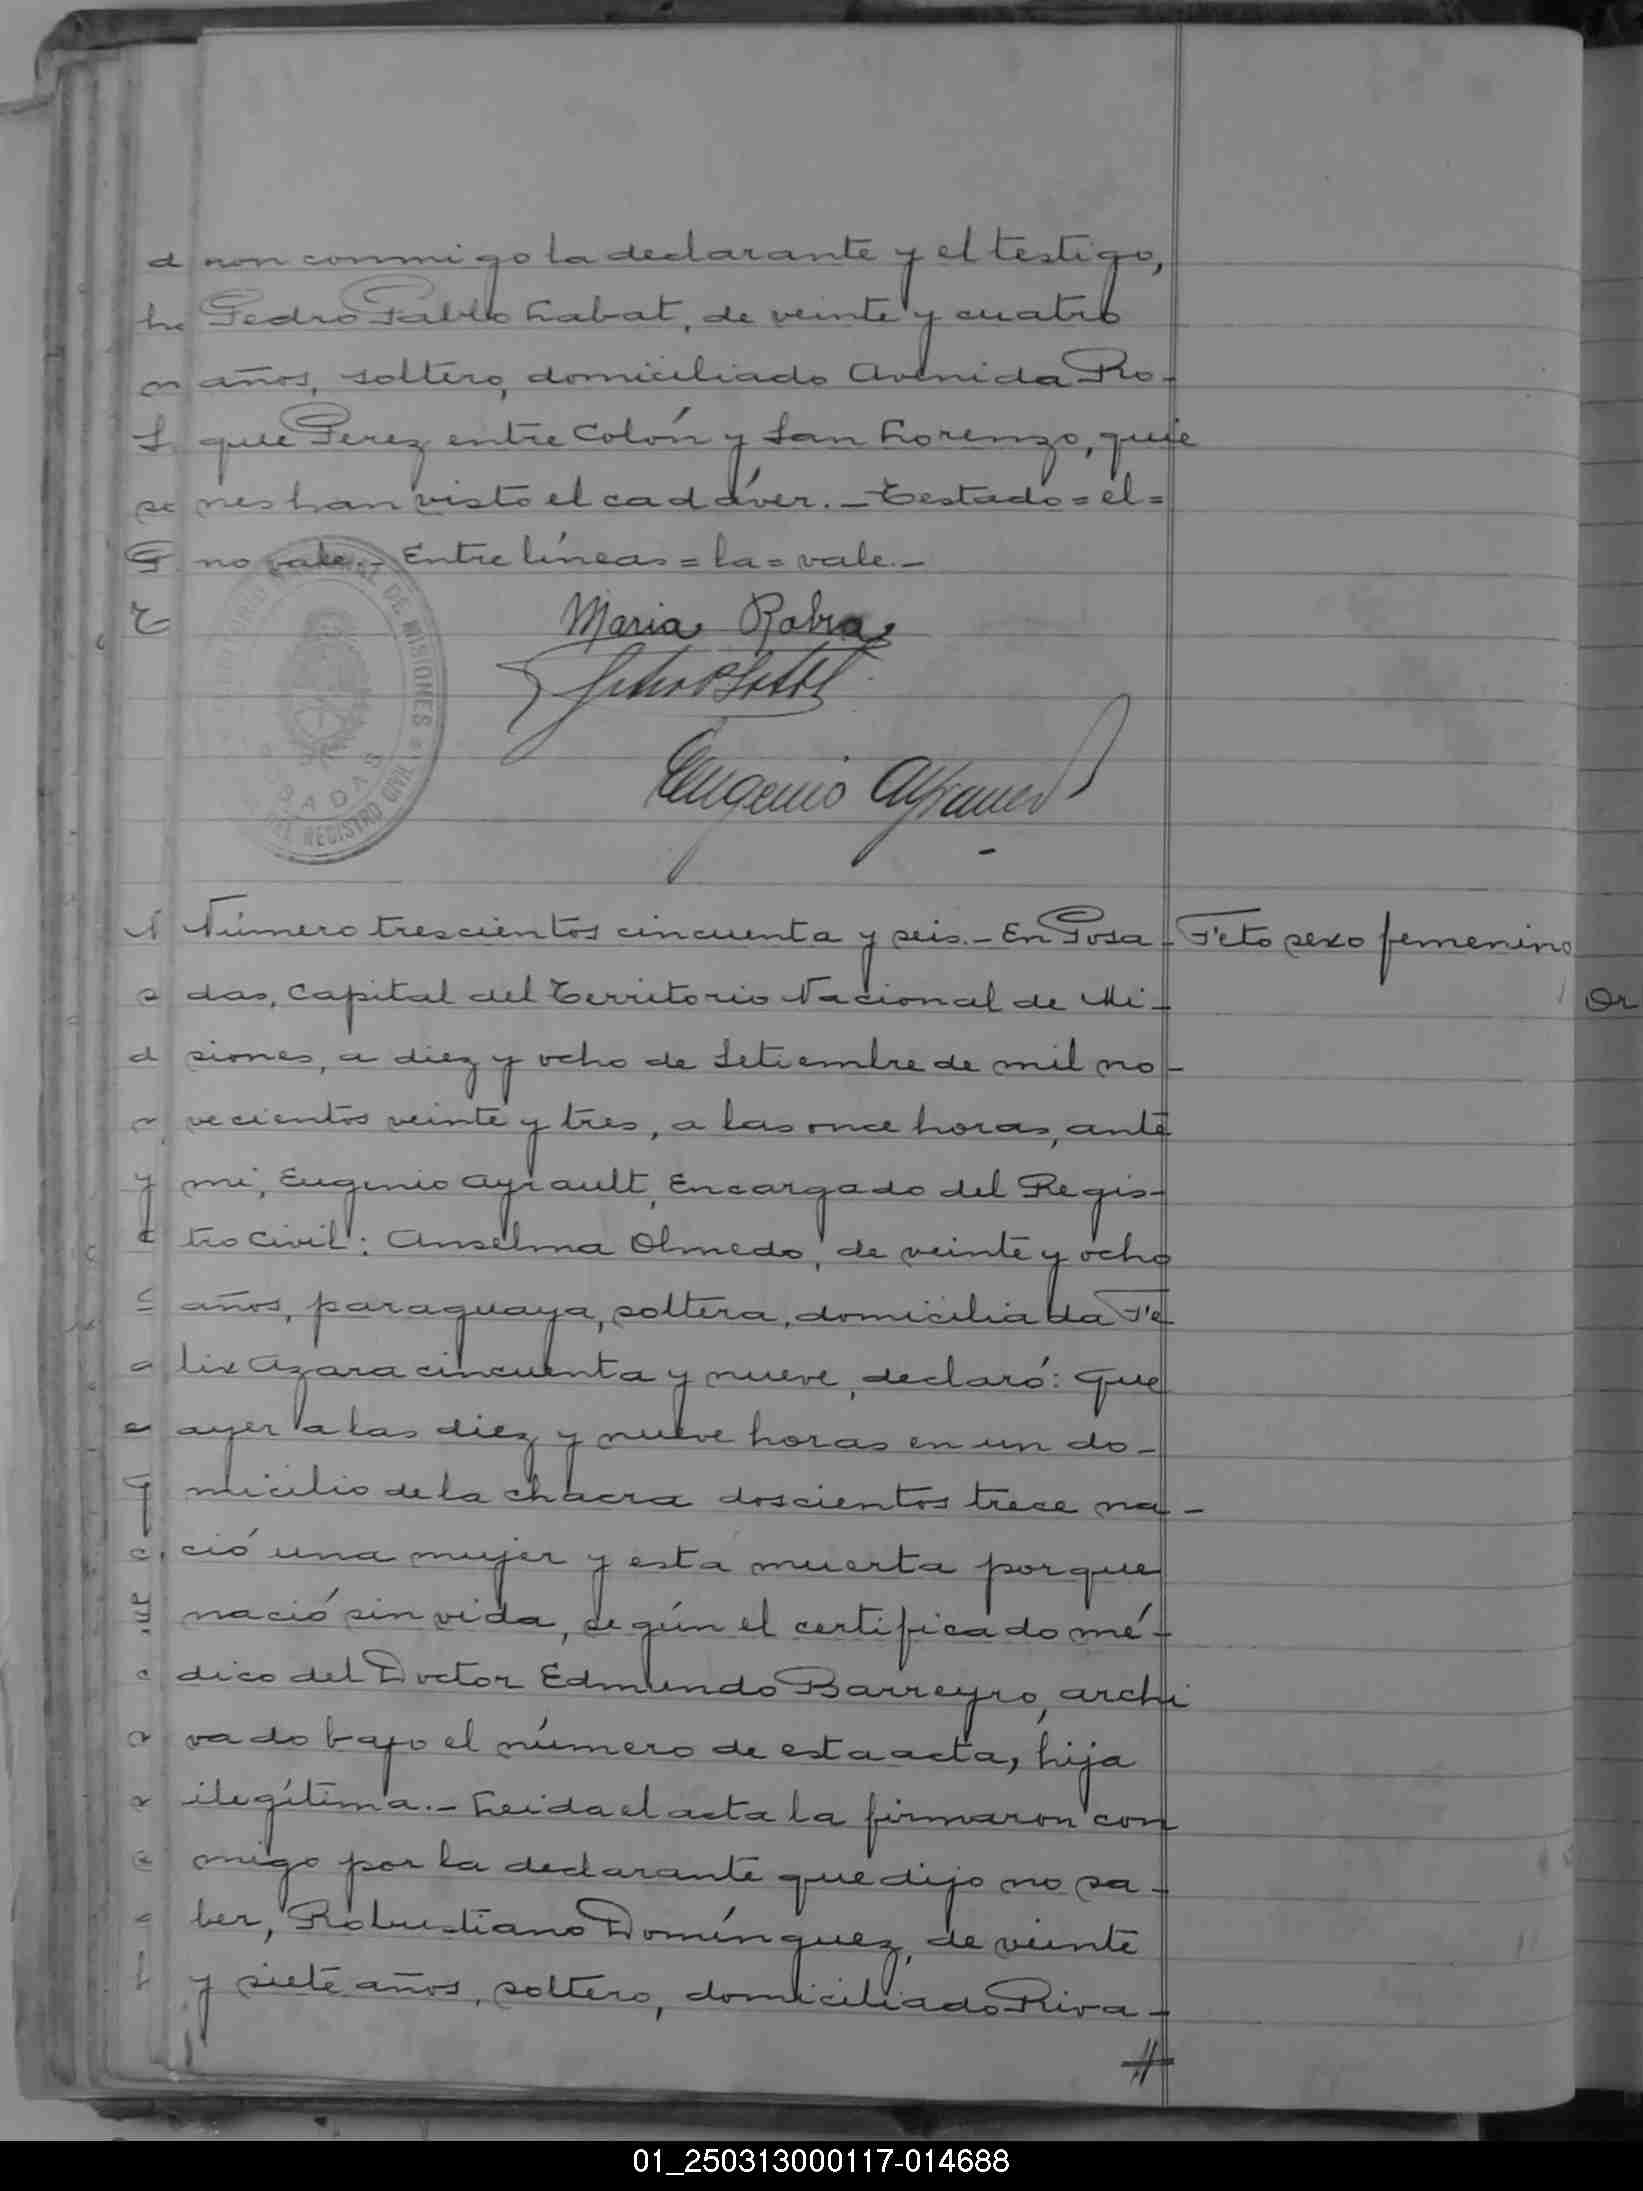 ron conmigo la declarante y el testigo,
Pedro Pablo Labat, de veinte y cuatro
años, soltero, domiciliado Avenida Ro-
que Perez entre Colón y San Lorenzo, quie
nes han visto el cadáver.-Testado=el=
no vale.- Entre líneas=la=vale.-
Maria
Eugenio
DE MISIONES
POSADAS
DEL REGISTRO CIVIL
Número trescientos cincuenta y seis.-En Posa-
Feto sexo femenino
das, Capital del Territorio Nacional de Mi-
siones, a diez y ocho de Setiembre de mil no-
vecientos veinte y tres, a las once horas, ante
mi, Eugenio Ayrault, Encargado del Regis-
tro Civil: Anselma Olmedo, de veinte y ocho
años, paraguaya, soltera, domiciliada Fe
lix Azara cincuenta y nueve, declaró: Que
ayer a las diez y nueve horas en un do-
micilio de la chacra doscientos trece na-
ció una mujer y está muerta porque
nació sin vida, según el certificado mé-
dico del Doctor Edmundo Barreyro, archi
vado bajo el número de esta acta, hija
ilegítima.-Leida el acta la firmaron con
migo por la declarante que dijo no sa-
ber, Robustiano Domínguez, de veinte
y siete años, soltero, domiciliado Riva-
01_250313000117-014688